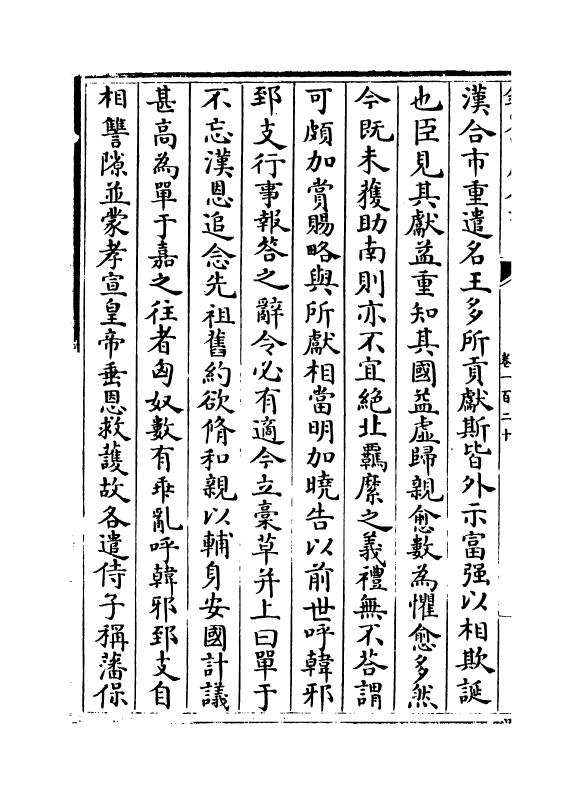 漢合市重遣名王多所貢獻斯皆外示富强以相欺誕
也臣見其獻益重知其國益虛歸親愈數為懼愈多然
今既未獲助南則亦不宜絶北羈縻之義禮無不荅謂
可頗加賞賜略與所獻相當明加曉告以前世呼韓邪
郅支行事報答之辭令必有適今立稾草并上曰單于
不忘漢恩追念先祖舊約欲脩和親以輔身安國計議
甚高為單于嘉之往者匈奴數有乖亂呼韓邪郅支自
相讐隙並蒙孝宣皇帝垂恩救䕶故各遣侍子稱藩保
卷一百二十